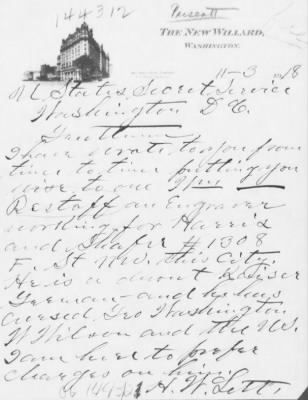 144312
Prescott
THE NEW WILLARD,
WASHINGTON.
11-3 18
U. States Secret Service
Washington D C.
Gentlemen
I have wrote to you from
time to time putting you
wise to one
Restaff an Engraver
working for Harris
and Shafer # 1308
F. St N.W. this City.
He is a Kaiser
German - and he has
cursed Geo Washington
W Wilson and the U.S.
I am here to prefer
charges on him.
H. W. Lett